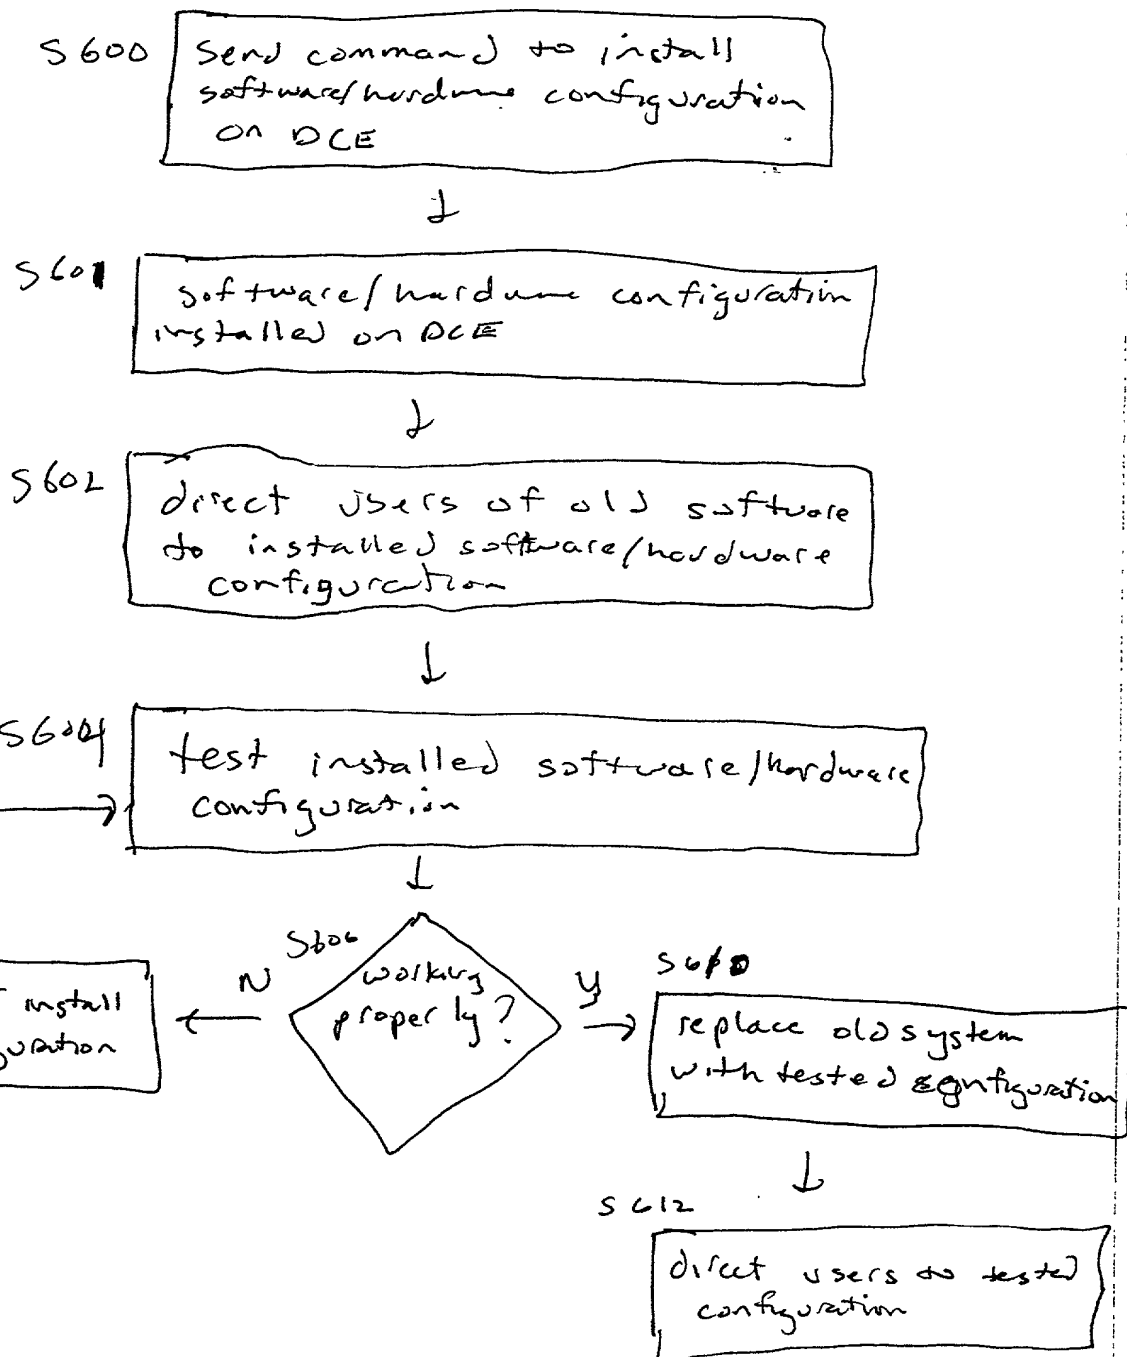 S600
Send command to install
software/hardware configuration
on DCE
S601
software/hardware configuration
installed on DCE
S602
direct users of old software
to installed software/hardware
configuration
S604
test installed software/hardware
configuration
S606
working
properly?
N
Y
install
guration
S610
replace old system
with tested configuration
S612
direct users to tested
configuration